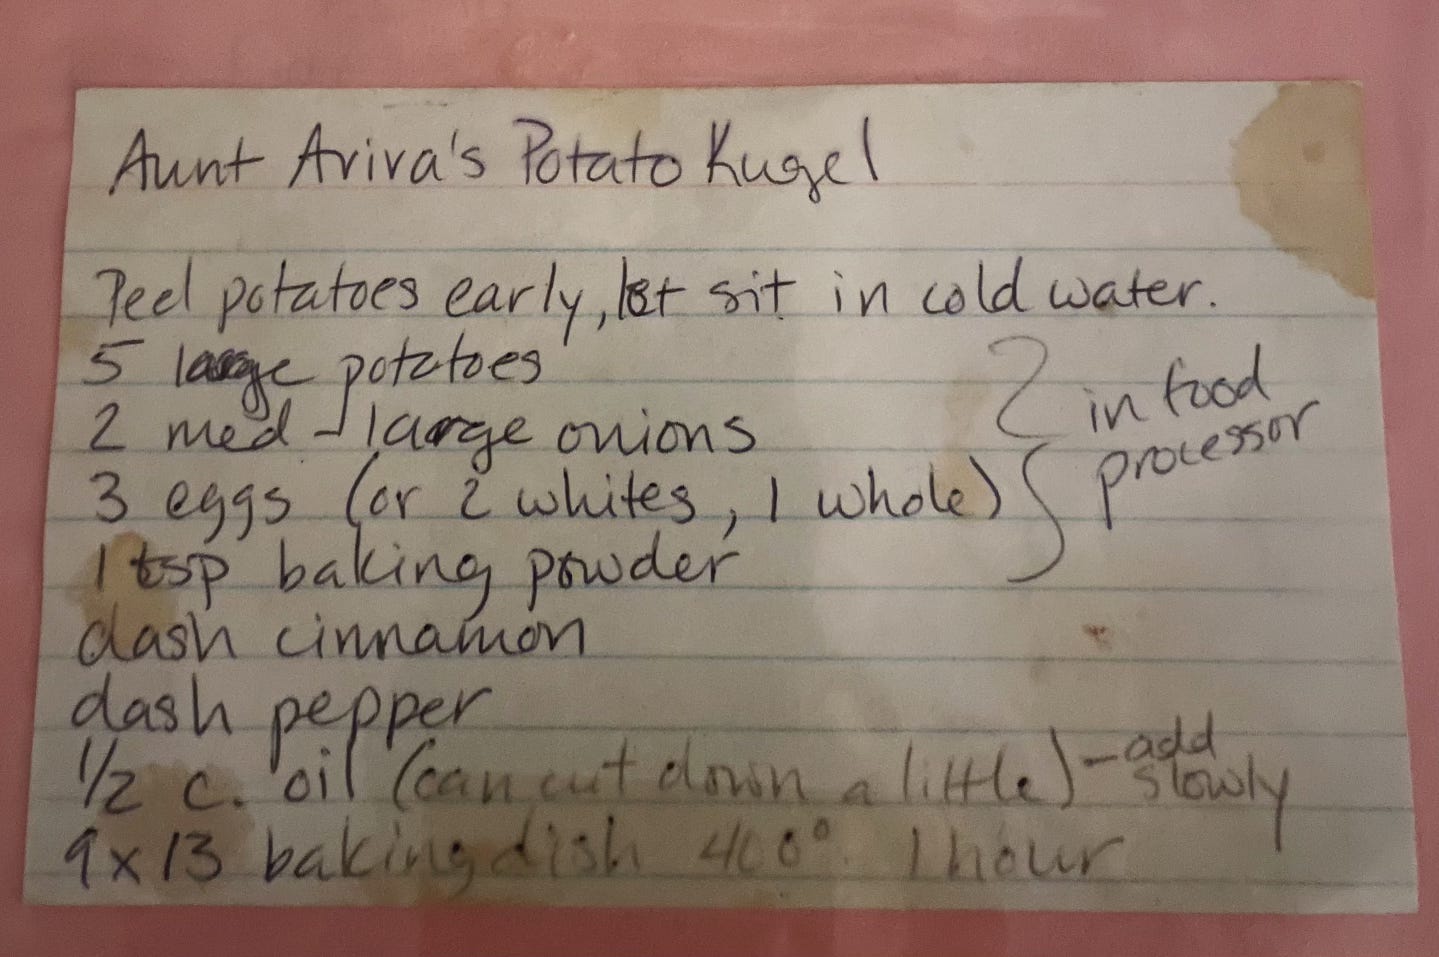 Aunt Aviva's Potato Kugel
Peel potatoes early, let sit in cold water.
5 large potatoes
2 med - large onions
3 eggs (or 2 whites, 1 whole)
in food
processor
1 tsp baking powder
dash cinnamon
dash pepper
1/2 c. oil (can cut down a little) - add
slowly
9x13 baking dish 400° 1 hour